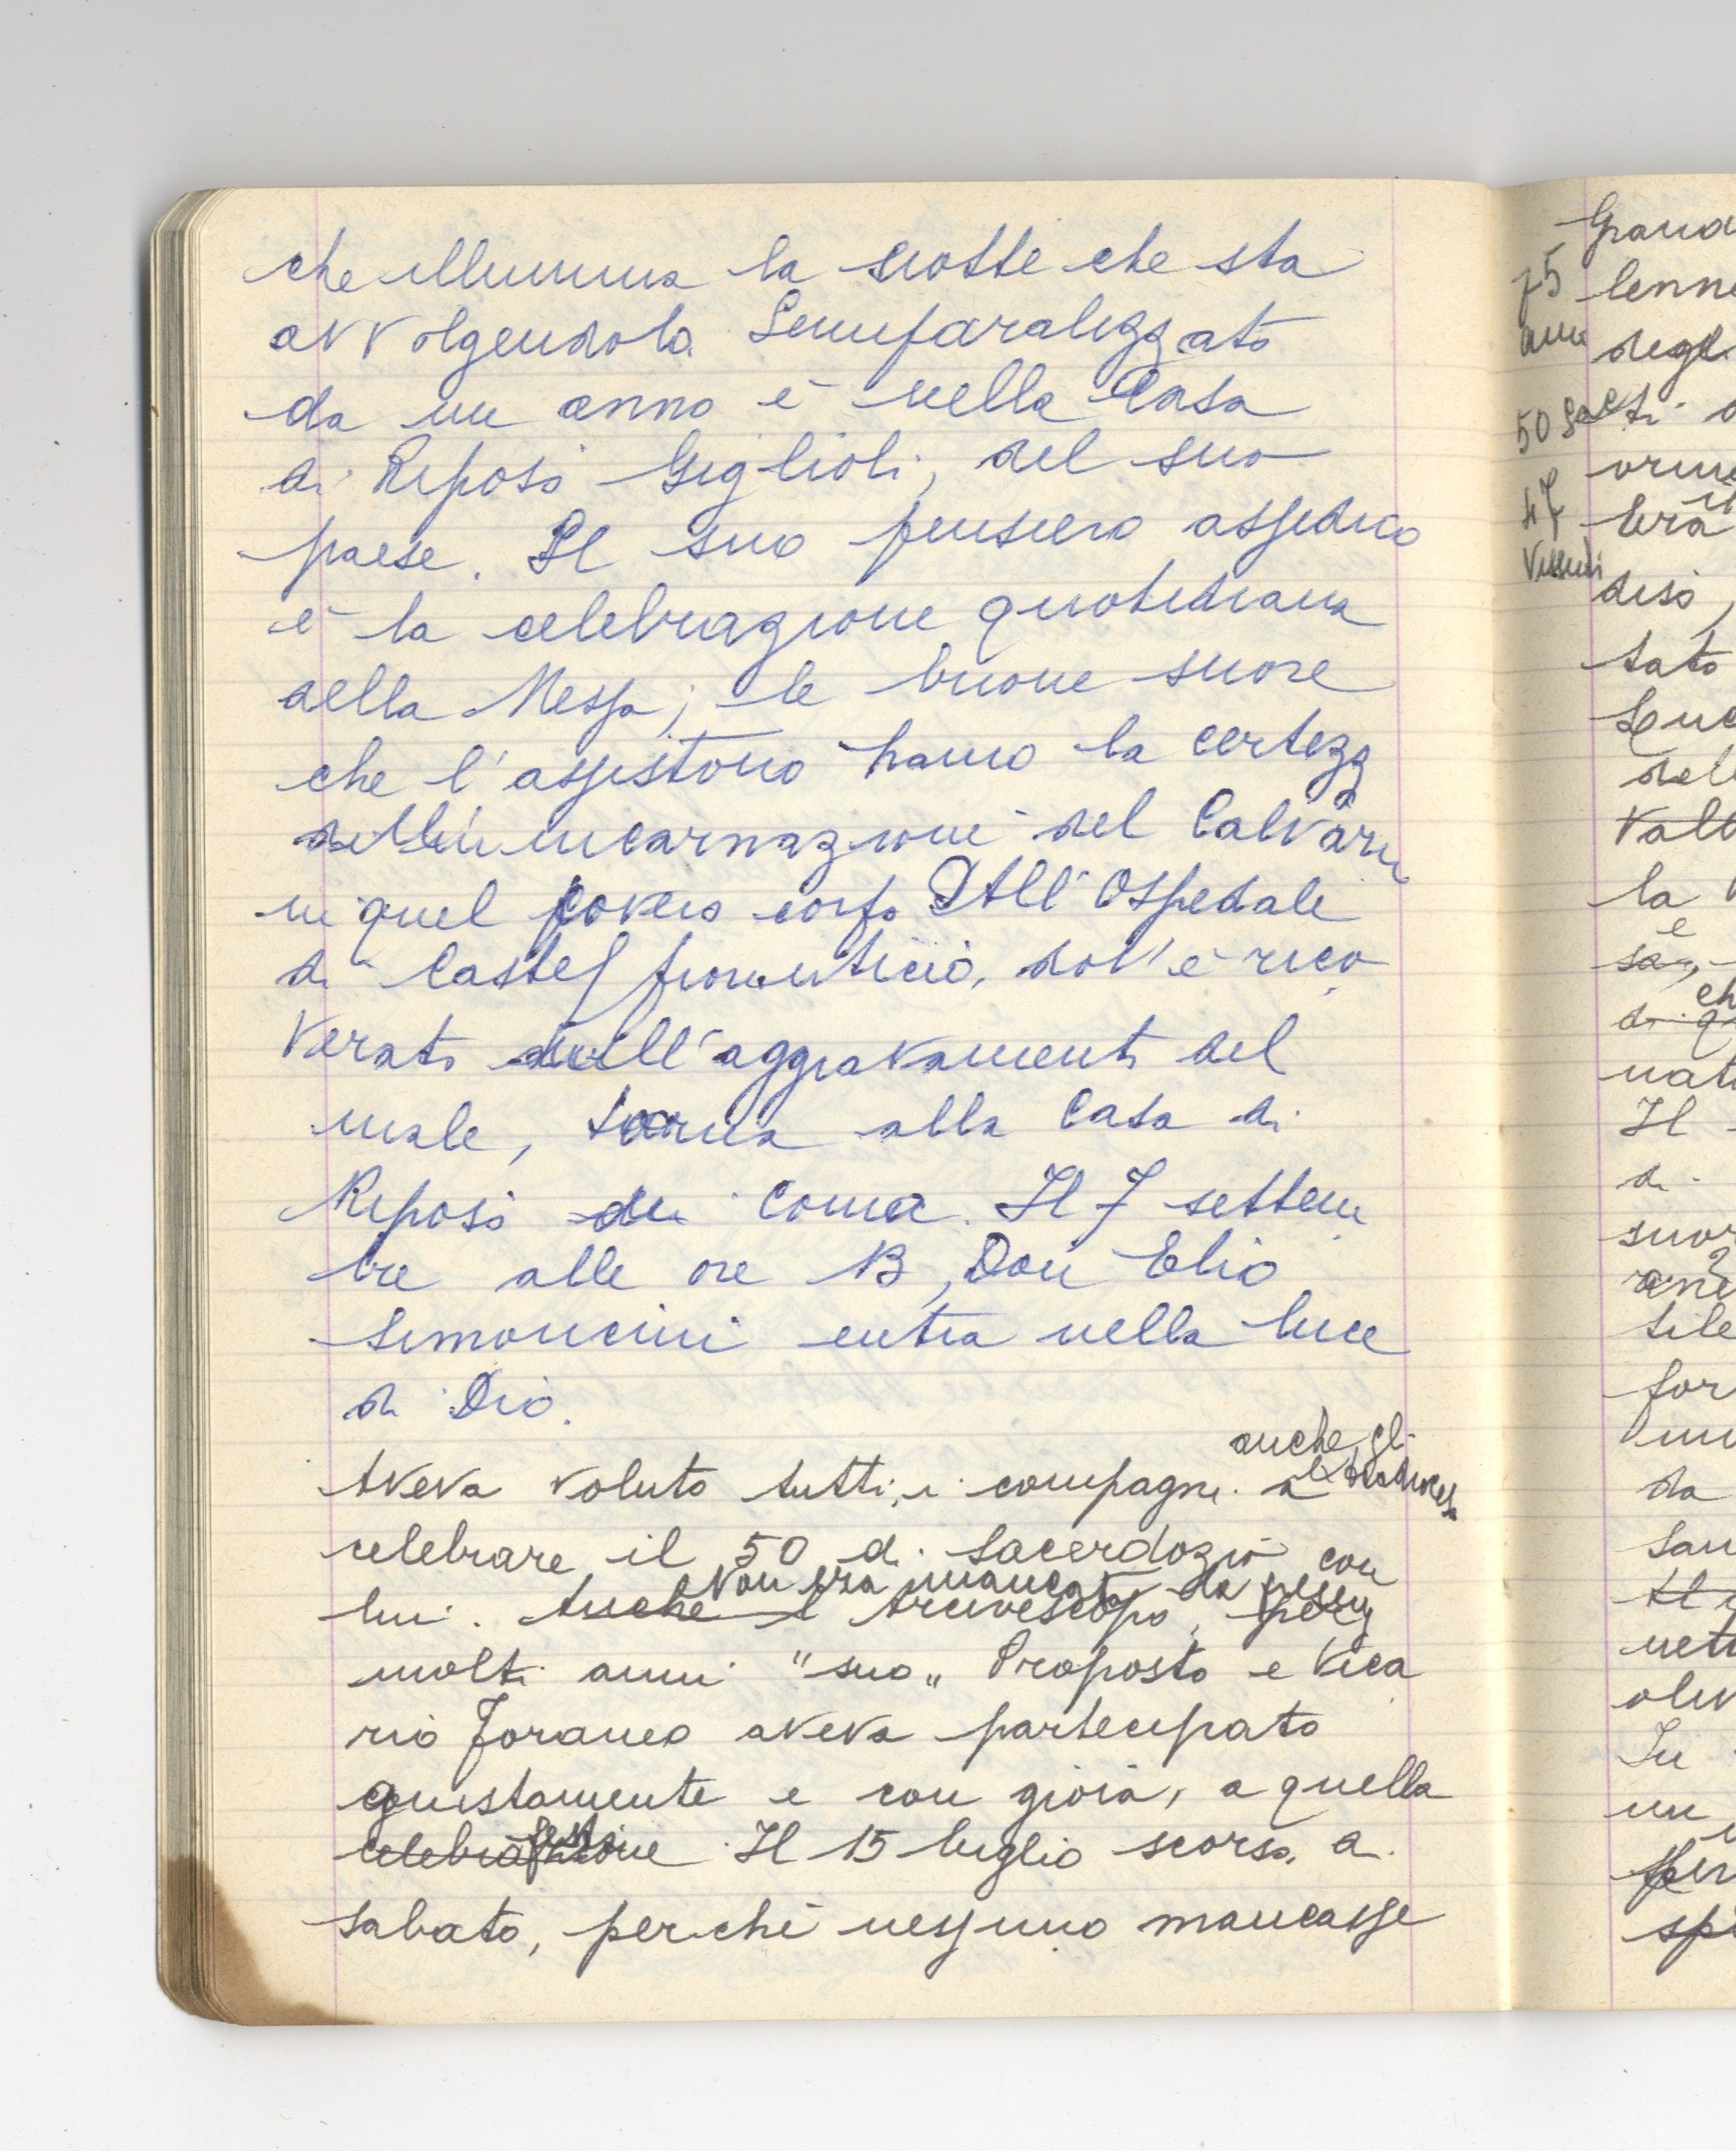 che illumina la notte che sta
avvolgendola. Semiparalizzato
da un anno è nella Casa
di Riposo Giglioli, del suo
paese. Il suo pensiero assiduo
è la celebrazione quotidiana
della Messa; le buone suore
che l'assistono hanno la certezza
dell'incarnazione del Calvario
in quel povero corpo. Dall'Ospedale
di Castelfiorentino, dov'è rico
verato all'aggravamento del
male, torna alla Casa di
Riposo in coma. Il 7 settem
bre alle ore 13, Don Elio
Simoncini entra nella luce
di Dio.
anche gli
Aveva voluto tutti, i compagni a extradiocesi
celebrare il 50 di Sacerdozio con
Non era mancato
lui. Anche l'Arcivescovo, per
molti anni "suo" Proposto e Vica
rio Foraneo aveva partecipato
giustamente e con gioia, a quella
festa
celebrazione Il 15 luglio scorso, di
sabato, perché nessuno mancasse
Grand
75 lenne
anni degl
50 Sac
47 bra
Vissuti
diso,
tato
Luc
del
Vall
la
è
sa
ch
di q
nat
Il
di
suor
ane
tile
for
da
san
Il
oliv
In
un
per
spi